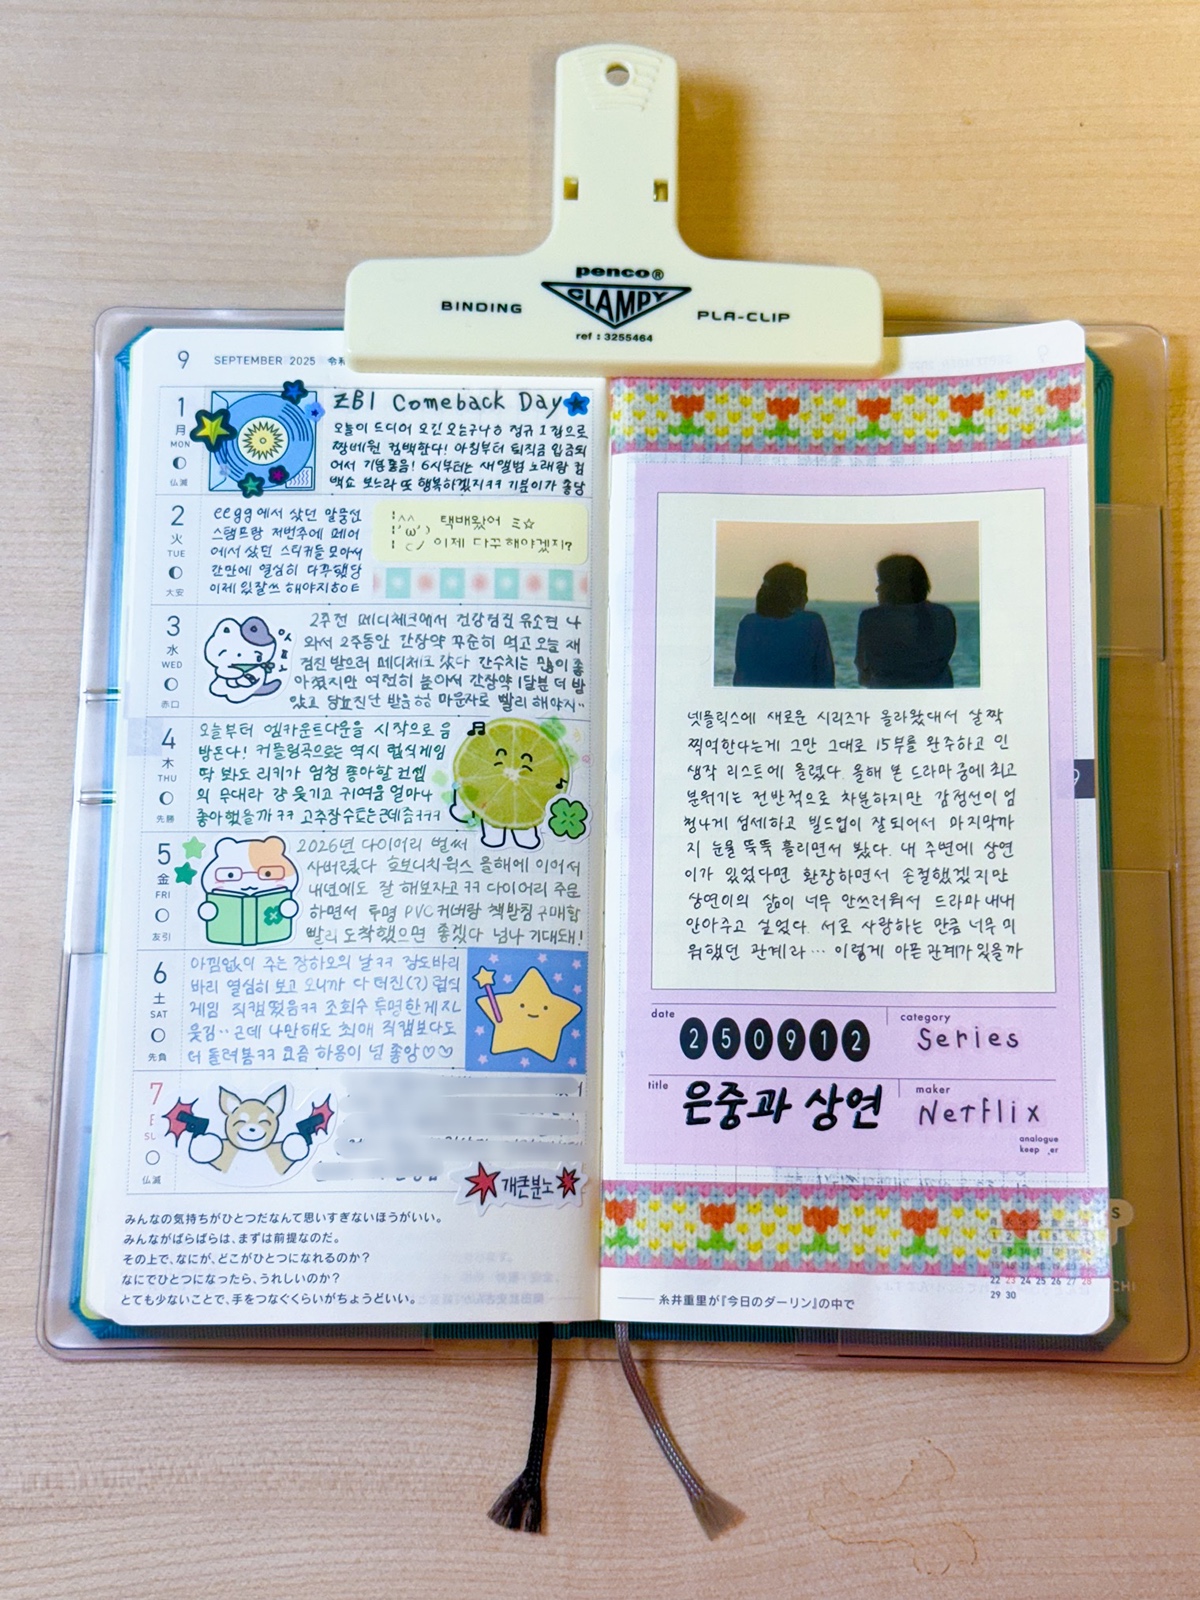 penco®
CLAMPY
BINDING
PLA-CLIP
ref : 3255464
9 SEPTEMBER 2025 令和
1
月
MON
仏滅
ZB1 Comeback Day
오늘이 드디어 오긴 오는구나ㅎ 정규 1집으로
짱베원 컴백한다! 아침부터 퇴직금 입금되
어서 기분좋음! 6시부터는 새앨범 노래랑 컴
백쇼 보느라 또 행복하겠지ㅋㅋ 기분이가 좋당
2
火
TUE
大安
eegg에서 샀던 말풍선
스탬프랑 저번주에 페어
에서 샀던 스티커들 모아서
간만에 열심히 다꾸했당
이제 일잘쓰 해야지
택배왔어 ミ☆
이제 다꾸해야겠지?
3
水
WED
赤口
2주전 메디체크에서 건강검진 유소견 나
와서 2주동안 간장약 꾸준히 먹고 오늘 재
검진 받으러 메디체크 갔다 간수치는 많이 좋
아졌지만 여전히 높아서 간장약 1달분 더 받
았고 당뇨진단 받음 마운자로 빨리 해야지..
4
木
THU
先勝
오늘부터 엠카운트다운을 시작으로 음
방돈다! 커플링곡으로는 역시 럽식게임
딱 봐도 리키가 엄청 좋아할 컨셉
의 무대라 걍 웃기고 귀여움 얼마나
좋아했을까ㅋㅋ 고추장수트는근데좀ㅋㅋㅋ
5
金
FRI
友引
2026년 다이어리 벌써
사버렸다 호보니치윅스 올해에 이어서
내년에도 잘 해보자고ㅋㅋ 다이어리 주문
하면서 투명 PVC커버랑 책받침 구매함
빨리 도착했으면 좋겠다 넘나 기대돼!
6
土
SAT
先負
아낌없이 주는 장하오의 날ㅋㅋ 잠도바리
바리 열심히 보고 오니까 다 터진(?) 럽식
게임 직캠떴음ㅋㅋ 조회수 투명한게 지나
웃김.. 근데 나만해도 최애 직캠보다도
더 돌려봄ㅋㅋ 요즘 하옹이 넘 좋앙♡♡
7
仏滅
개큰분노
みんなの気持ちがひとつだなんて思いすぎないほうがいい。
みんながばらばらは、まずは前提なのだ。
その上で、なにが、どこがひとつになれるのか?
なにでひとつになったら、うれしいのか?
とても少ないことで、手をつなぐくらいがちょうどいい。
넷플릭스에 새로운 시리즈가 올라왔대서 살짝
찍먹한다는게 그만 그대로 15부를 완주하고 인
생작 리스트에 올렸다. 올해 본 드라마 중에 최고
분위기는 전반적으로 차분하지만 감정선이 엄
청나게 섬세하고 빌드업이 잘 되어서 마지막까
지 눈물 뚝뚝 흘리면서 봤다. 내 주변에 상연
이가 있었다면 환장하면서 손절했겠지만
상연이의 삶이 너무 안쓰러워서 드라마 내내
안아주고 싶었다. 서로 사랑하는 만큼 너무 미
워했던 관계라… 이렇게 아픈 관계가 있을까
date 250912
category Series
title 은중과 상연
maker Netflix
analogue
keeper
22 23 24 25 26 27 28
29 30
糸井重里が『今日のダーリン』の中で